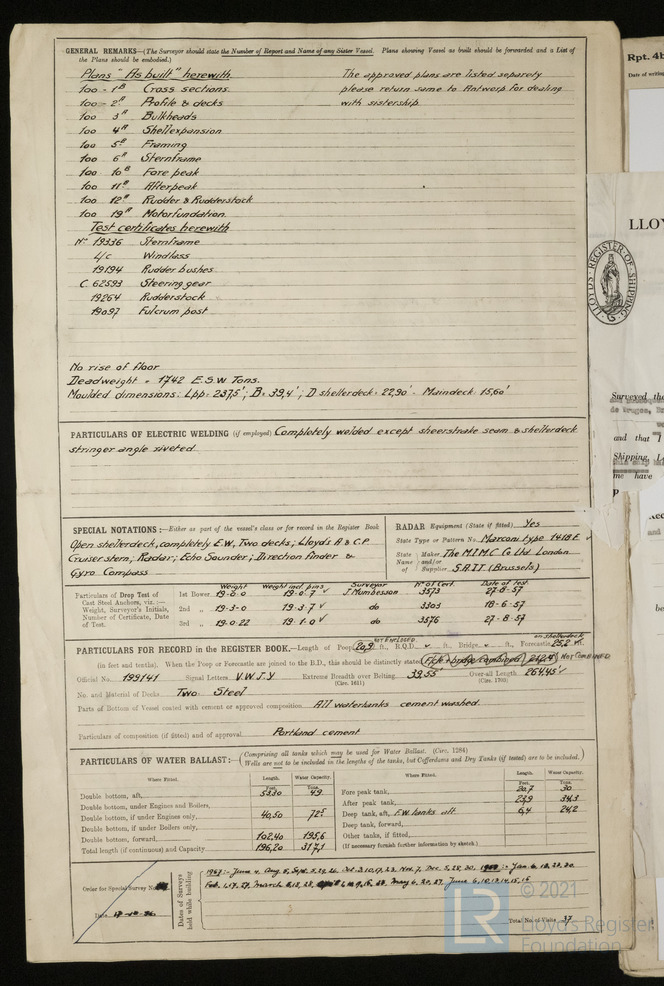 GENERAL REMARKS—(The Surveyor should state the Number of Report and Name of any Sister Vessel. Plans showing Vessel as built should be forwarded and a List of
the Plans should be embodied.)
Plans "As built" herewith
100 - 1B Cross sections.
100 - 2A Profile & decks
100 3A Bulkheads
100 4A Shellexpansion
100 5B Framing
100 6A Sternframe
100 10B Fore peak
100 11B Afterpeak
100 12A Rudder & Rudderstock
100 19A Motorfundation.
The approved plans are listed separety
please return same to Antwerp for dealing
with sistership.
Test certificates herewith
No 19336 Sternframe
L/c Windlass
19194 Rudder bushes
C 62593 Steering gear
19264 Rudderstock
19097 Fulcrum post
No rise of floor
Deadweight = 1742 E.S.W Tons.
Moulded dimensions: Lpp = 237,5'; B = 39,4'; D shelterdeck = 22,90' - Maindeck = 15,60'
PARTICULARS OF ELECTRIC WELDING (if employed) Completely welded except sheerstrake seam & shelterdeck
stringer angle riveted
SPECIAL NOTATIONS:—Either as part of the vessel's class or for record in the Register Book
Open shelterdeck, completely E.W, Two decks; Lloyd's A & C.P
Cruiser stern; Radar; Echo Sounder; Direction finder &
Gyro Compass
RADAR Equipment (State if fitted) Yes
State Type or Pattern No. Marconi type 1418 E
State Name Maker The M.I.M.C Co Ltd London
and/or
of Supplier S.A.I.T (Brussels)
Particulars of Drop Test of Cast Steel Anchors, viz.:—
Weight, Surveyor's Initials, Number of Certificate, Date of Test.
Weight Weight incl. pins Surveyor No of Cert. Date of Test
1st Bower 19-0.0 19.0.7 J Mumbesson 3573 27-8-57
2nd „ 19-3-0 19-3-7 do 3303 18-6-57
3rd „ 19-0-22 19-1-0 do 3576 27-8-57
PARTICULARS FOR RECORD in the REGISTER BOOK.—Length of Poop 20,9 ft., R.Q.D. ft., Bridge ft., Forecastle 25,2
not ENCLOSED
on shelterdeck
(in feet and tenths). When the Poop or Forecastle are joined to the B.D., this should be distinctly stated
NOT COMBINED
Official No. 199141 Signal Letters V.W.J.Y Extreme Breadth over Belting 39,55 Over-all Length 264,45
(Circ. 1611) (Circ. 1703)
No. and Material of Decks Two Steel
Parts of Bottom of Vessel coated with cement or approved composition All waterbanks cement washed.
Particulars of composition (if fitted) and of approval Portland cement
PARTICULARS OF WATER BALLAST:—(Comprising all tanks which may be used for Water Ballast. (Circ. 1284)
Wells are not to be included in the lengths of the tanks, but Cofferdams and Dry Tanks (if tested) are to be included.)
Where Fitted. Length. Water Capacity.
Feet. Tons.
Double bottom, aft, 53,30 49
Double bottom, under Engines and Boilers,
Double bottom, if under Engines only, 40,50 72,5
Double bottom, if under Boilers only,
Double bottom, forward, 102,40 195,6
Total length (if continuous) and Capacity 196,20 317,1
Where Fitted. Length. Water Capacity.
Feet. Tons.
Fore peak tank, 20,7 30
After peak tank, 23,9 34,3
Deep tank, aft, F.W. tanks aft 6,4 24,2
Deep tank, forward,
Other tanks, if fitted,
(If necessary furnish further information by sketch.)
Order for Special Survey No.
Date
Dates of Surveys
held while building
Total No. of Visits 37
Rpt. 4b
Date of writing
LLOY
LLOYD'S REGISTER OF SHIPPING
Surveyed the
and that I
Shipping,
me have
LR
© 2021
Lloyd's Register
Foundation